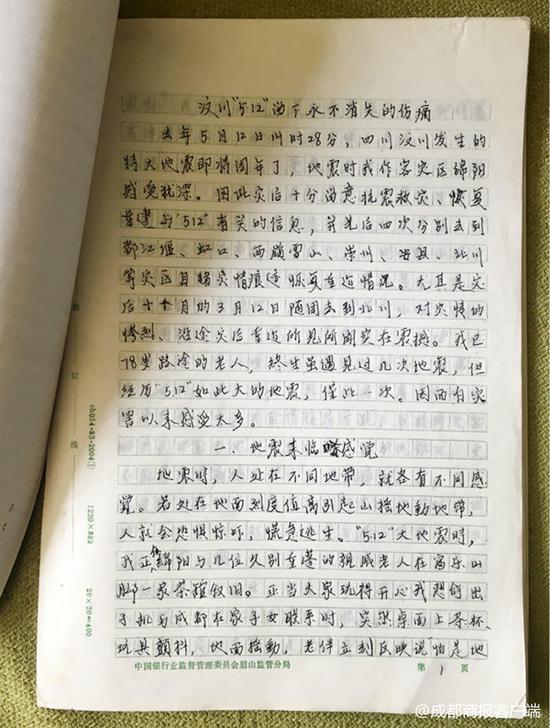 汶川"5.12"留下永不消失的伤痛
去年5月12日14时28分，四川汶川发生的
特大地震即将周年了，地震时我作客灾区绵阳
感受犹深。因此灾后十分留意抗震救灾、恢复
重建与"5.12"有关的信息，并先后四次分别去到
都江堰、虹口、西岭雪山、崇州、安县、北川
等灾区目睹灾情痕迹恢复重建情况。尤其是灾
后十个月的3月12日随团去到北川，对灾情的
惨烈、沿途灾后重建所见所闻实在震撼。我已
78岁路途的老人，终生虽遇见过几次地震，但
经历"5.12"如此大的地震，仅此一次。因而自灾
害以来感受太多。
一、地震来临感觉
地震时，人处在不同地带，就各有不同感
觉。若处在地面烈度值高引起山摇地动地带，
人就会恐惧惊吓，慌忙逃生。"5.12"大地震时，
我正在绵阳与几位久别重逢的亲戚老人在富乐山
脚一家茶馆叙旧。正当大家玩得开心我
手机与成都在家子女联系时，突然桌面上茶杯、
玩具颤抖，地面摇动，老伴立刻反映说"怕是地
中国银行业监督管理委员会眉山监管分局
第1页
装订线
ch054·83·2004①
1230×889
20×20=400
@成都商报客户端